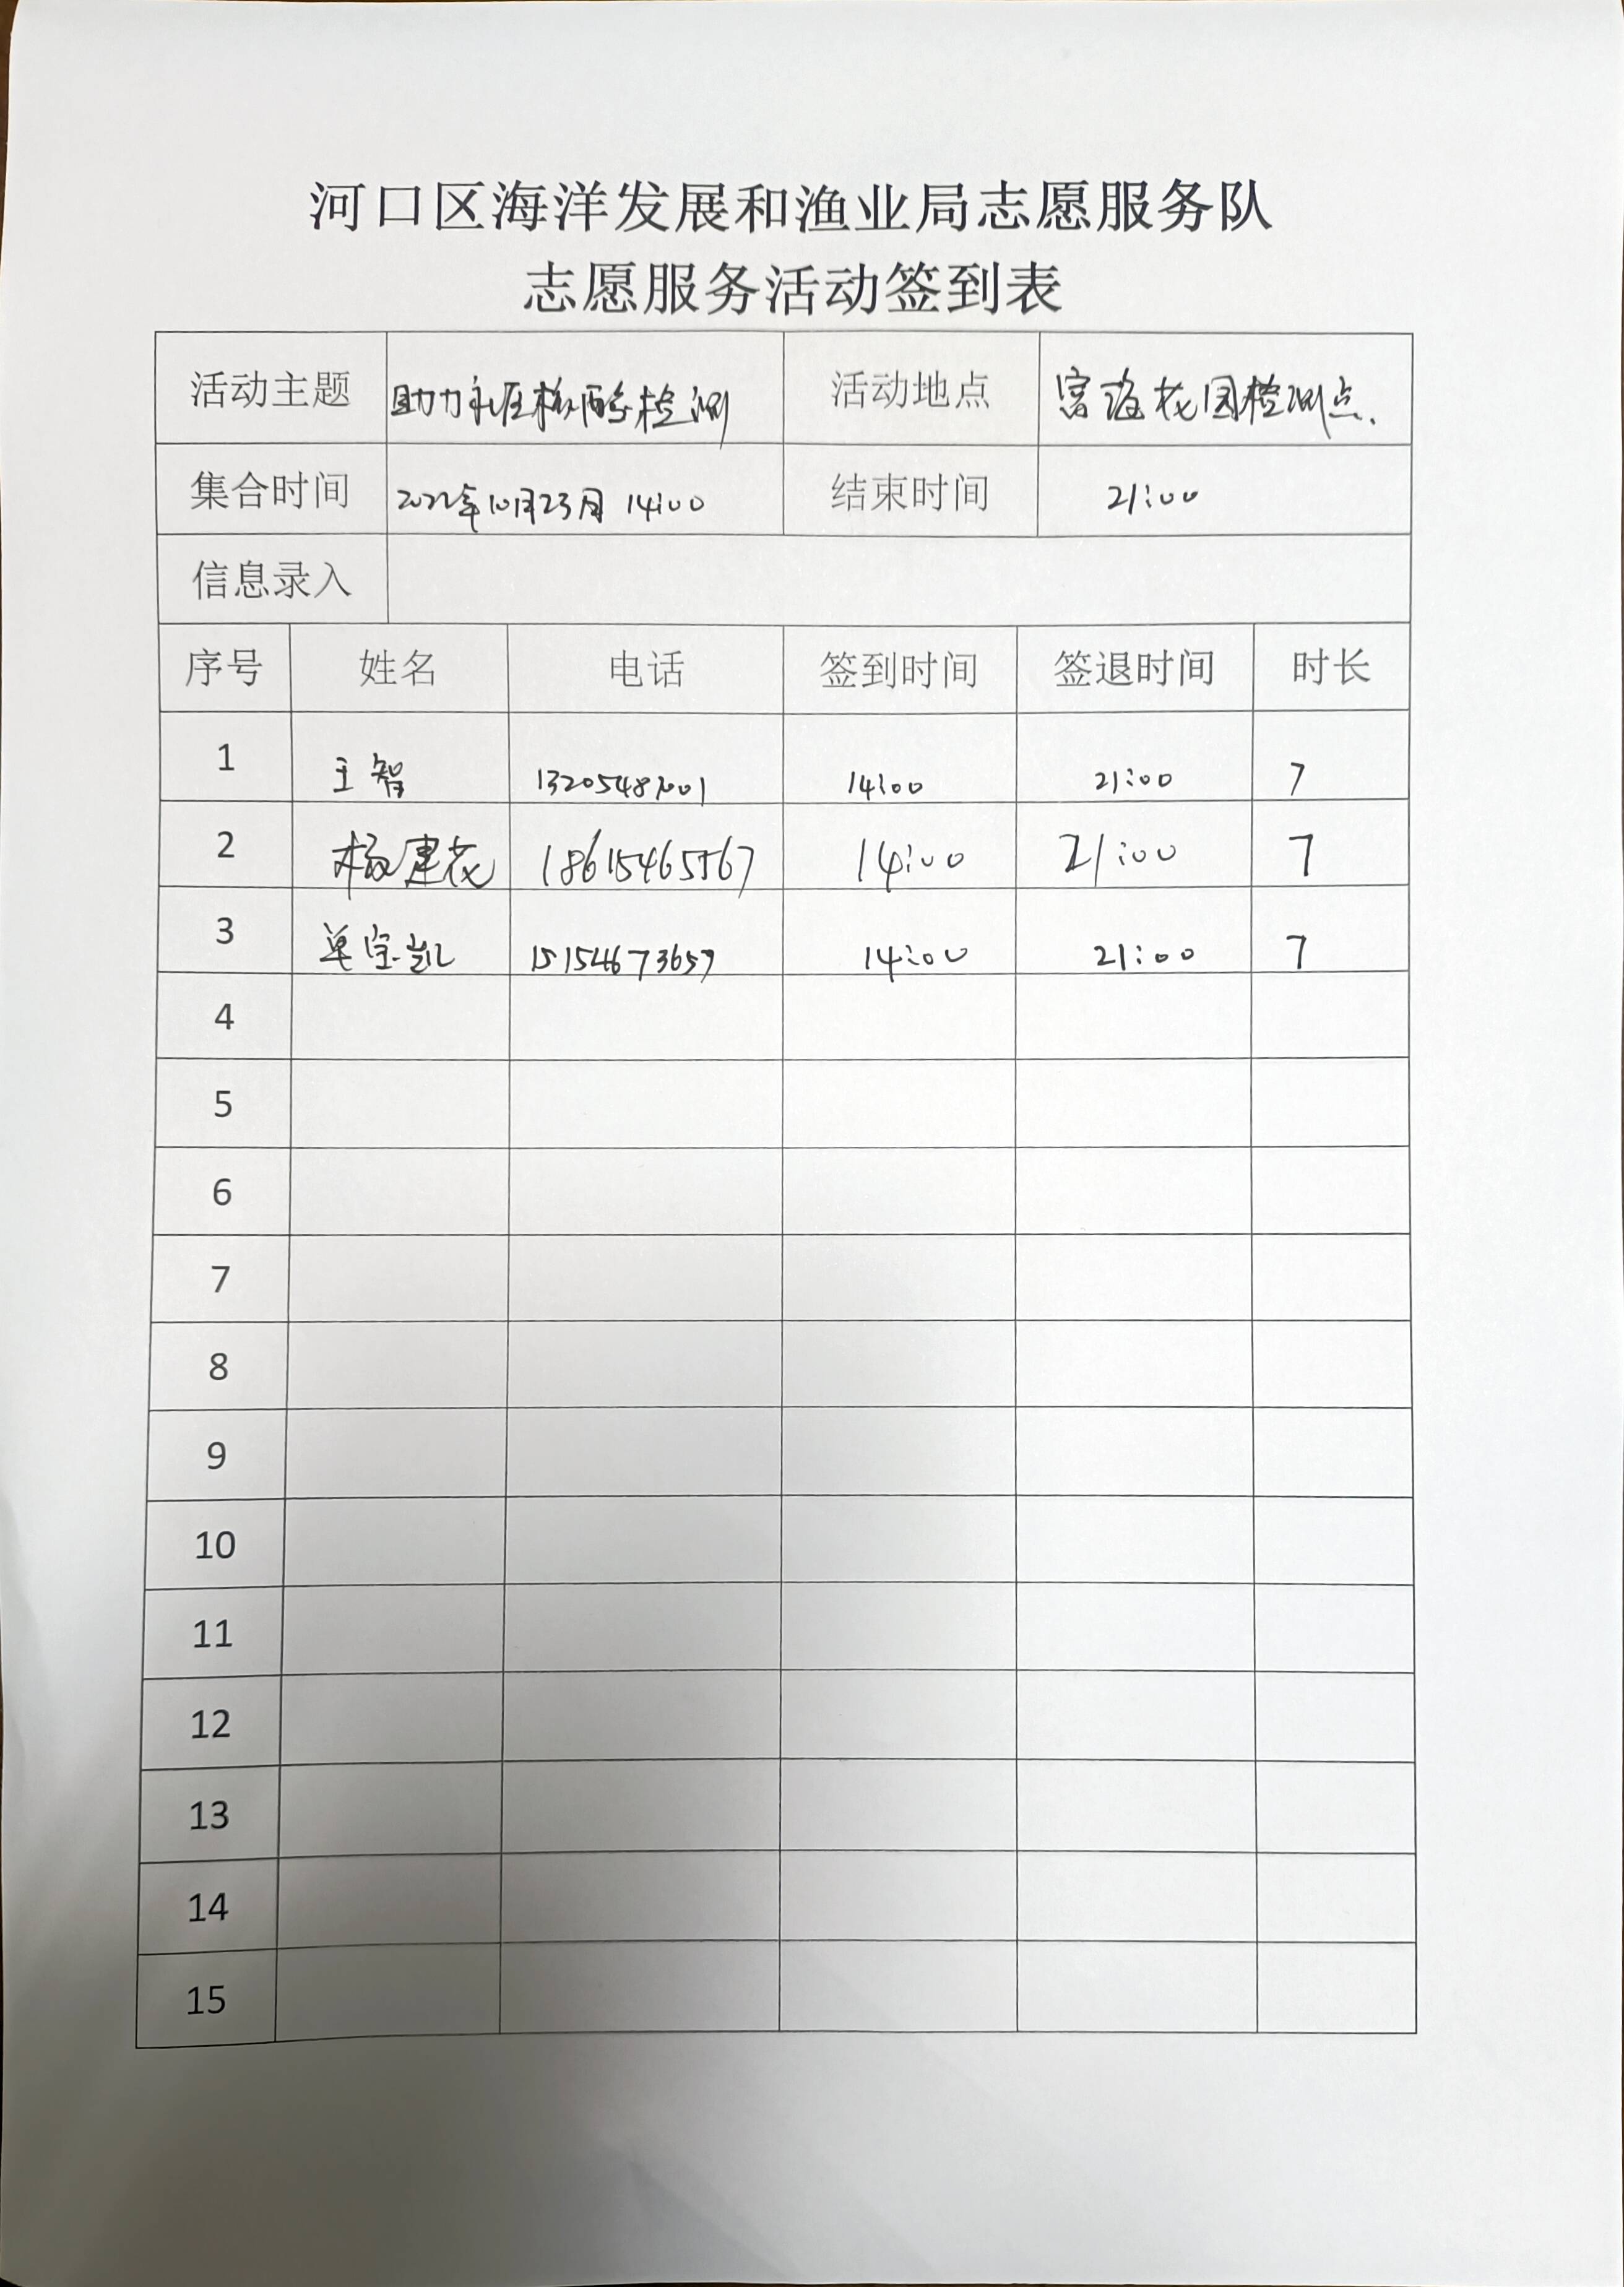 河口区海洋发展和渔业局志愿服务队
志愿服务活动签到表
活动主题 助力社区核酸检测 活动地点 富海花园检测点.
集合时间 2022年10月23日 14:00 结束时间 21:00
信息录入
序号 姓名 电话 签到时间 签退时间 时长
1 王智 14:00 21:00 7
2 杨建花 18615465567 14:00 21:00 7
3 单宝凯 15154673657 14:00 21:00 7
4
5
6
7
8
9
10
11
12
13
14
15